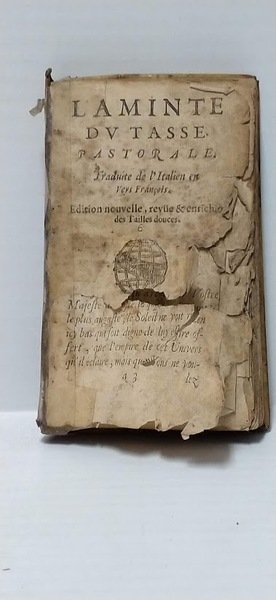 L'AMINTE
DV TASSE.
PASTORALE.
Traduite de l'Italien en
Vers François.
Edition nouvelle, revüe & enrichie
des Tailles douces.
Majesté
le plus auguste le Soleil ne voit rien
icy bas qui soit digne de luy estre of-
fert, que l'empire de cet Univers
qu'il éclaire; mais
A 3